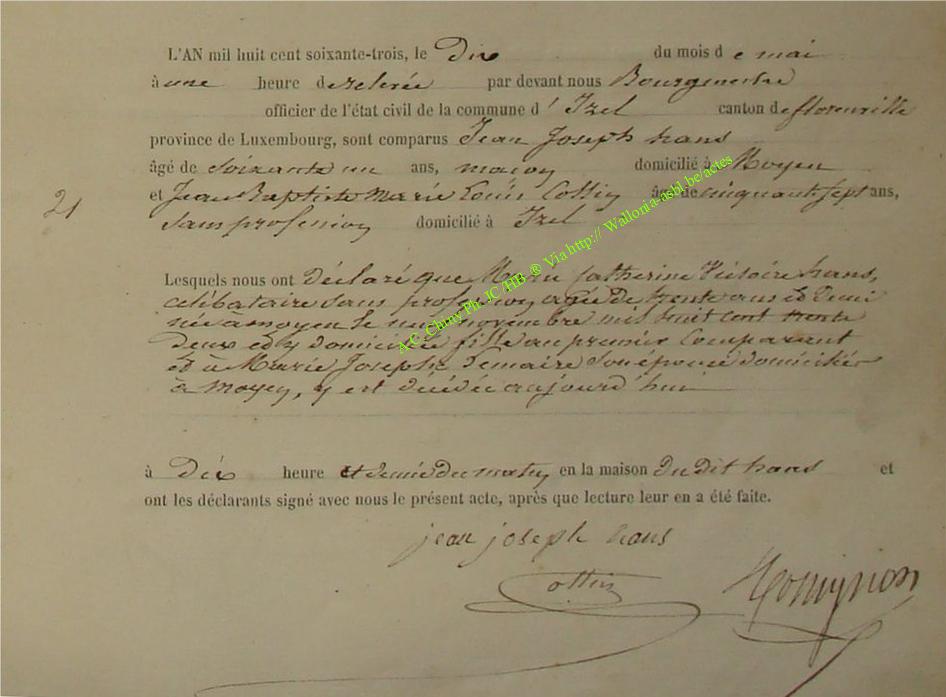 L'AN mil huit cent soixante-trois, le Dix du mois d e mai
à une heure de relevée par devant nous Bourgmestre
officier de l'état civil de la commune d' Izel canton de florenville
province de Luxembourg, sont comparus Jean Joseph hans
âgé de soixante un ans, maçon domicilié à Moyen
et Jean Baptiste Marie Louis Collin âgé de cinquante sept ans,
sans profession domicilié à Izel
21
Lesquels nous ont déclaré que Marie Catherine Victoire hans,
célibataire sans profession agée de trente ans et demi
née à moyen le neuf novembre mil huit cent trente
deux et y domiciliée fille du premier Comparant
et à Marie Josephe Lemaire son épouse domiciliés
à moyen, y est décédée aujourd'hui
à dix heure et demie du matin en la maison du dit hans et
ont les déclarants signé avec nous le présent acte, après que lecture leur en a été faite.
jean joseph hans
A.C. Chiny Ph. JC/HB ® Via http:// Wallonia-asbl.be/actes